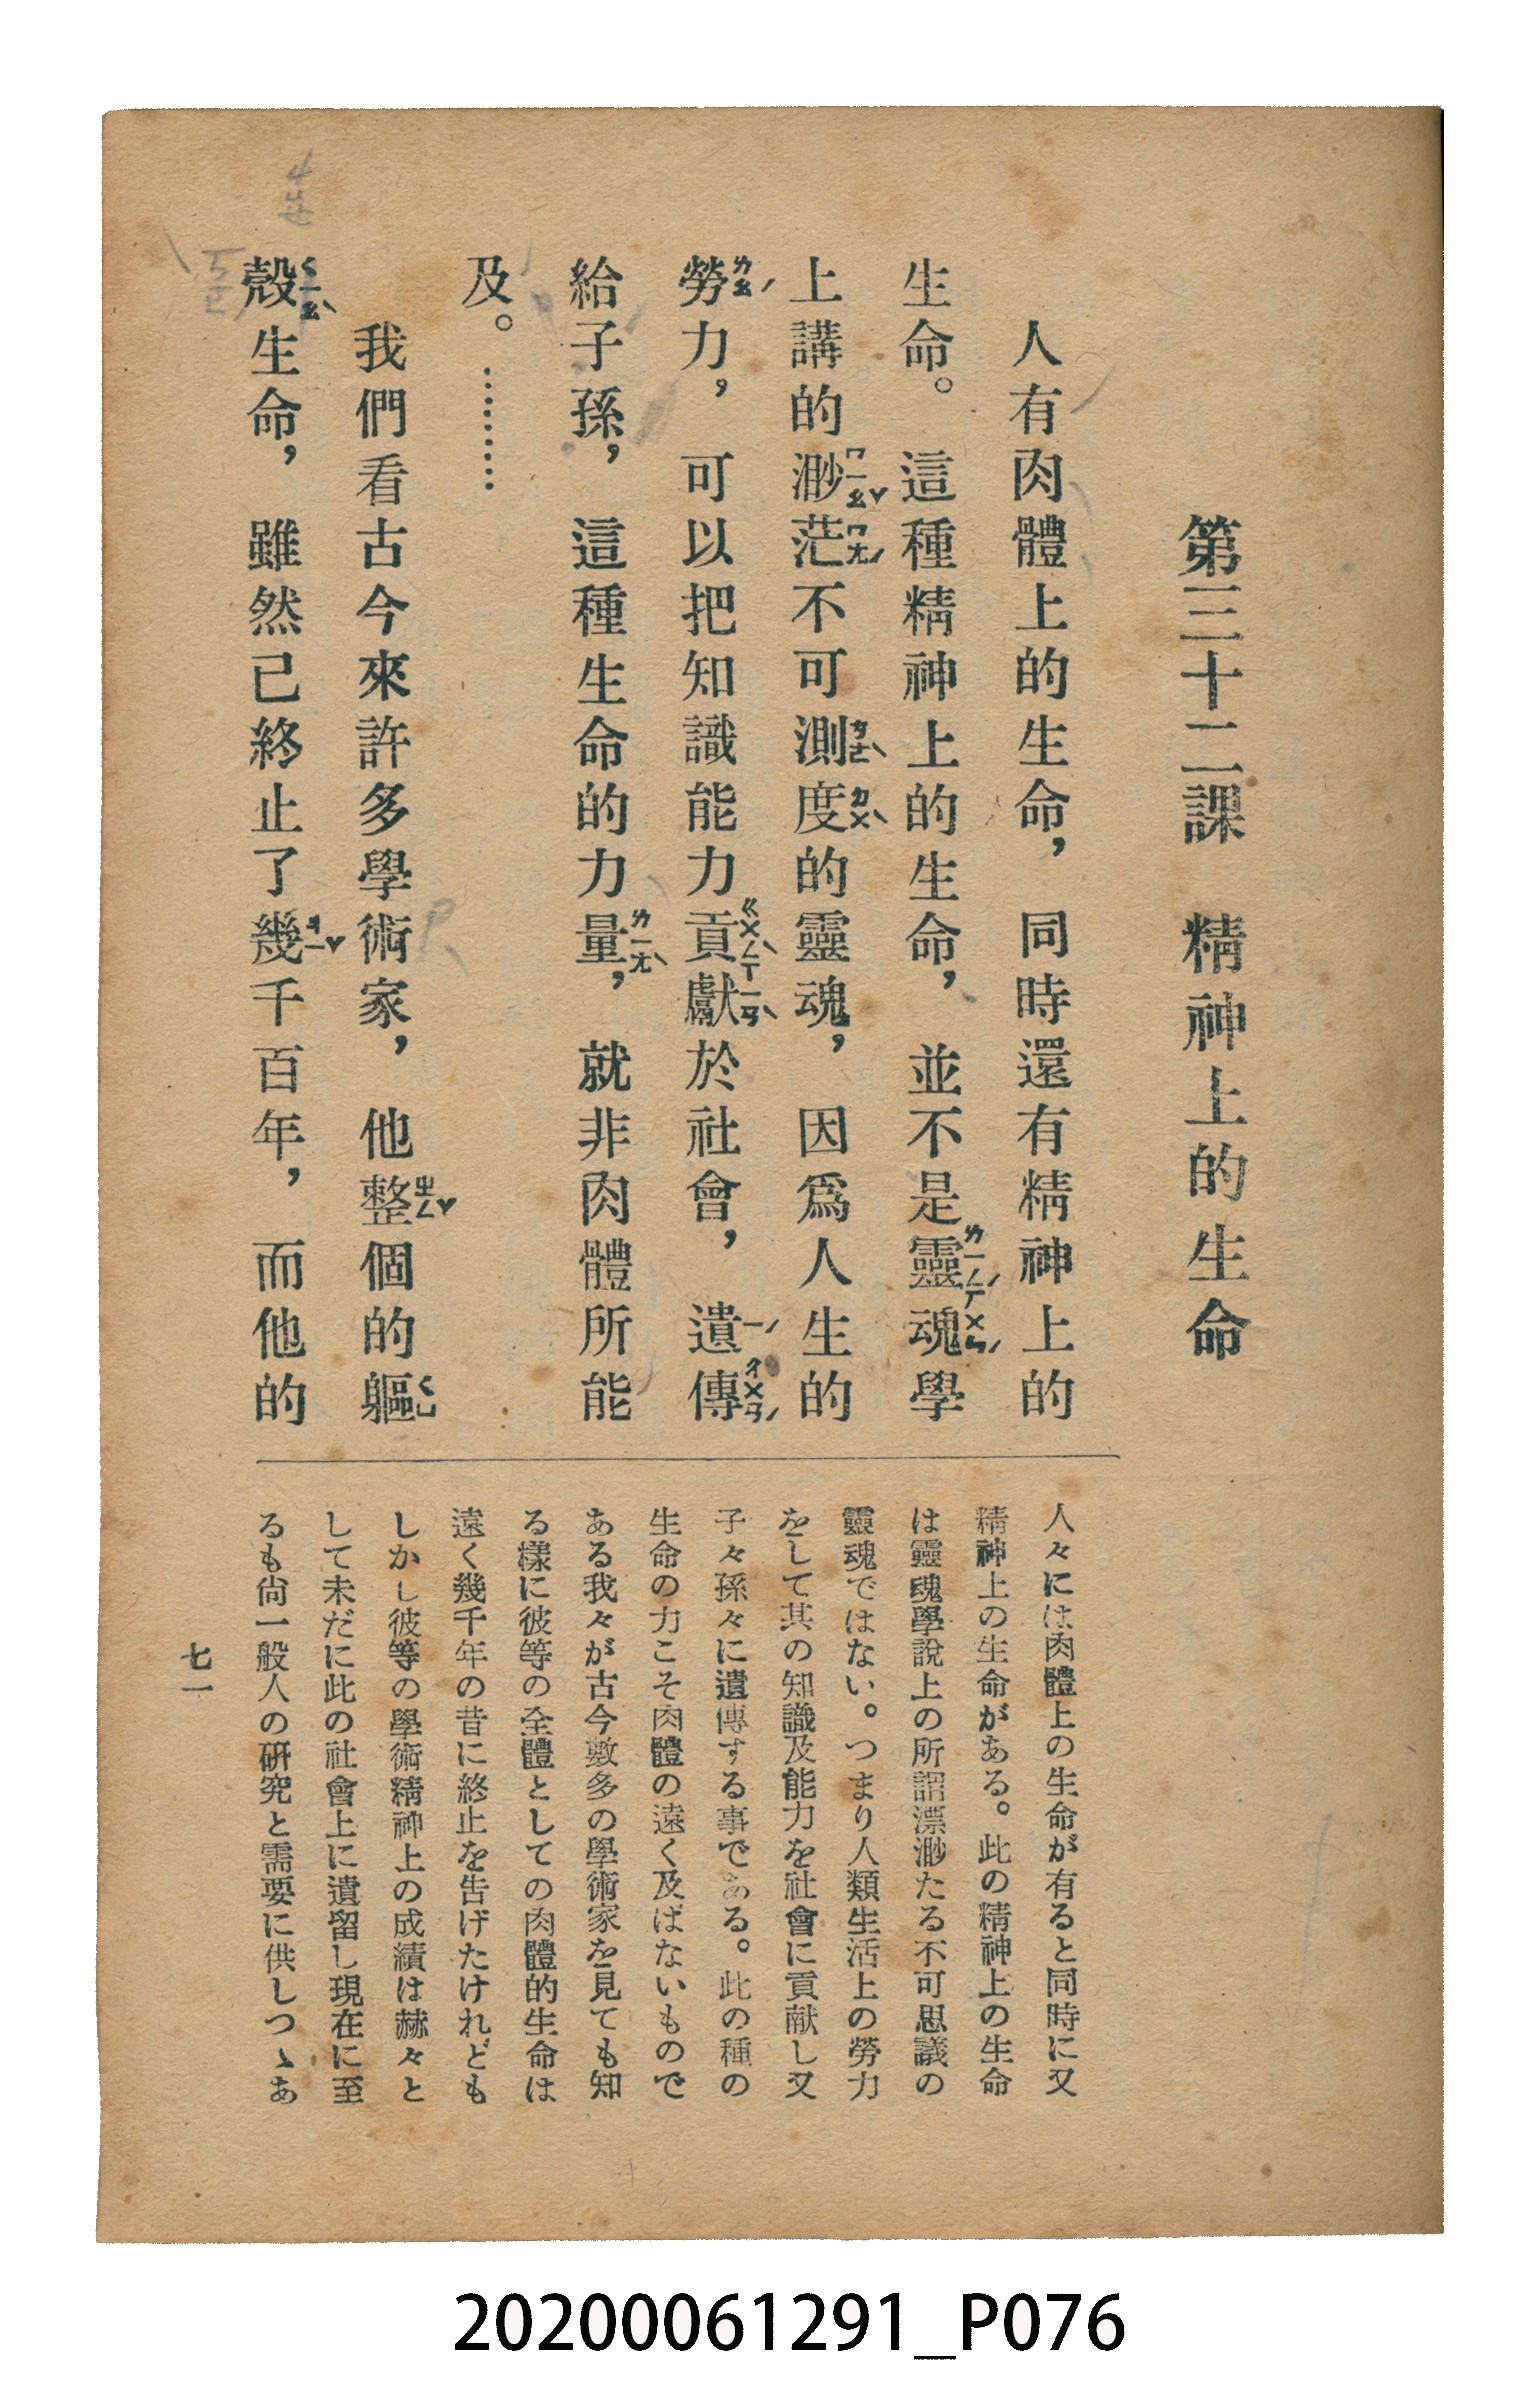 第三十二課　精神上的生命
人有肉體上的生命，同時還有精神上的
生命。這種精神上的生命，並不是靈魂學
上講的渺茫不可測度的靈魂，因爲人生的
勞力，可以把知識能力貢獻於社會，遺傳
給子孫，這種生命的力量，就非肉體所能
及。………
我們看古今來許多學術家，他整個的軀
殼生命，雖然已終止了幾千百年，而他的
人々には肉體上の生命が有ると同時に又
精神上の生命がある。此の精神上の生命
は靈魂學說上の所謂漂渺たる不可思議の
靈魂ではない。つまり人類生活上の勞力
をして其の知識及能力を社會に貢献し又
子々孫々に遺傳する事である。此の種の
生命の力こそ肉體の遠く及ばないもので
ある我々が古今數多の學術家を見ても知
る樣に彼等の全體としての肉體的生命は
遠く幾千年の昔に終止を告げたけれども
しかし彼等の學術精神上の成績は赫々と
して未だに此の社會上に遺留し現在に至
るも尙一般人の研究と需要に供しつゝあ
七一
20200061291_P076